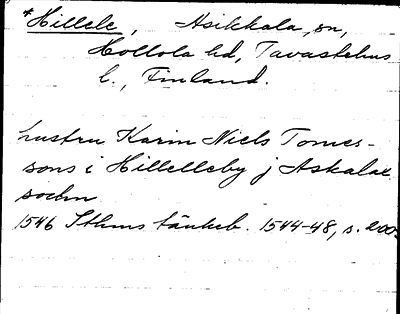 *Hillele, Asikkala, sn,
Hollola hd, Tavastehus
l., Finland.
hustru Karin Niels Tomes-
sons i Hillelleby j Askalax
sochn
1546 Sthms tänkeb. 1544-48, s. 200.